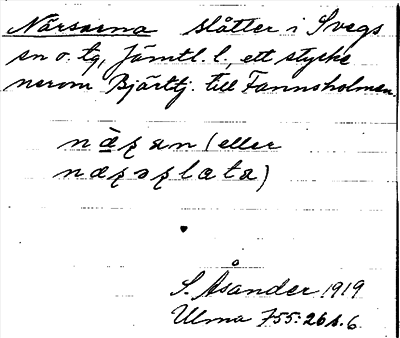 Närsarna slåtter i Svegs
sn o. tg, Jämtl. l., ett stycke
nerom Bjärttj. till Fannsholmen.
(eller
S. Åsander 1919
Ulma 755:26 s. 6.